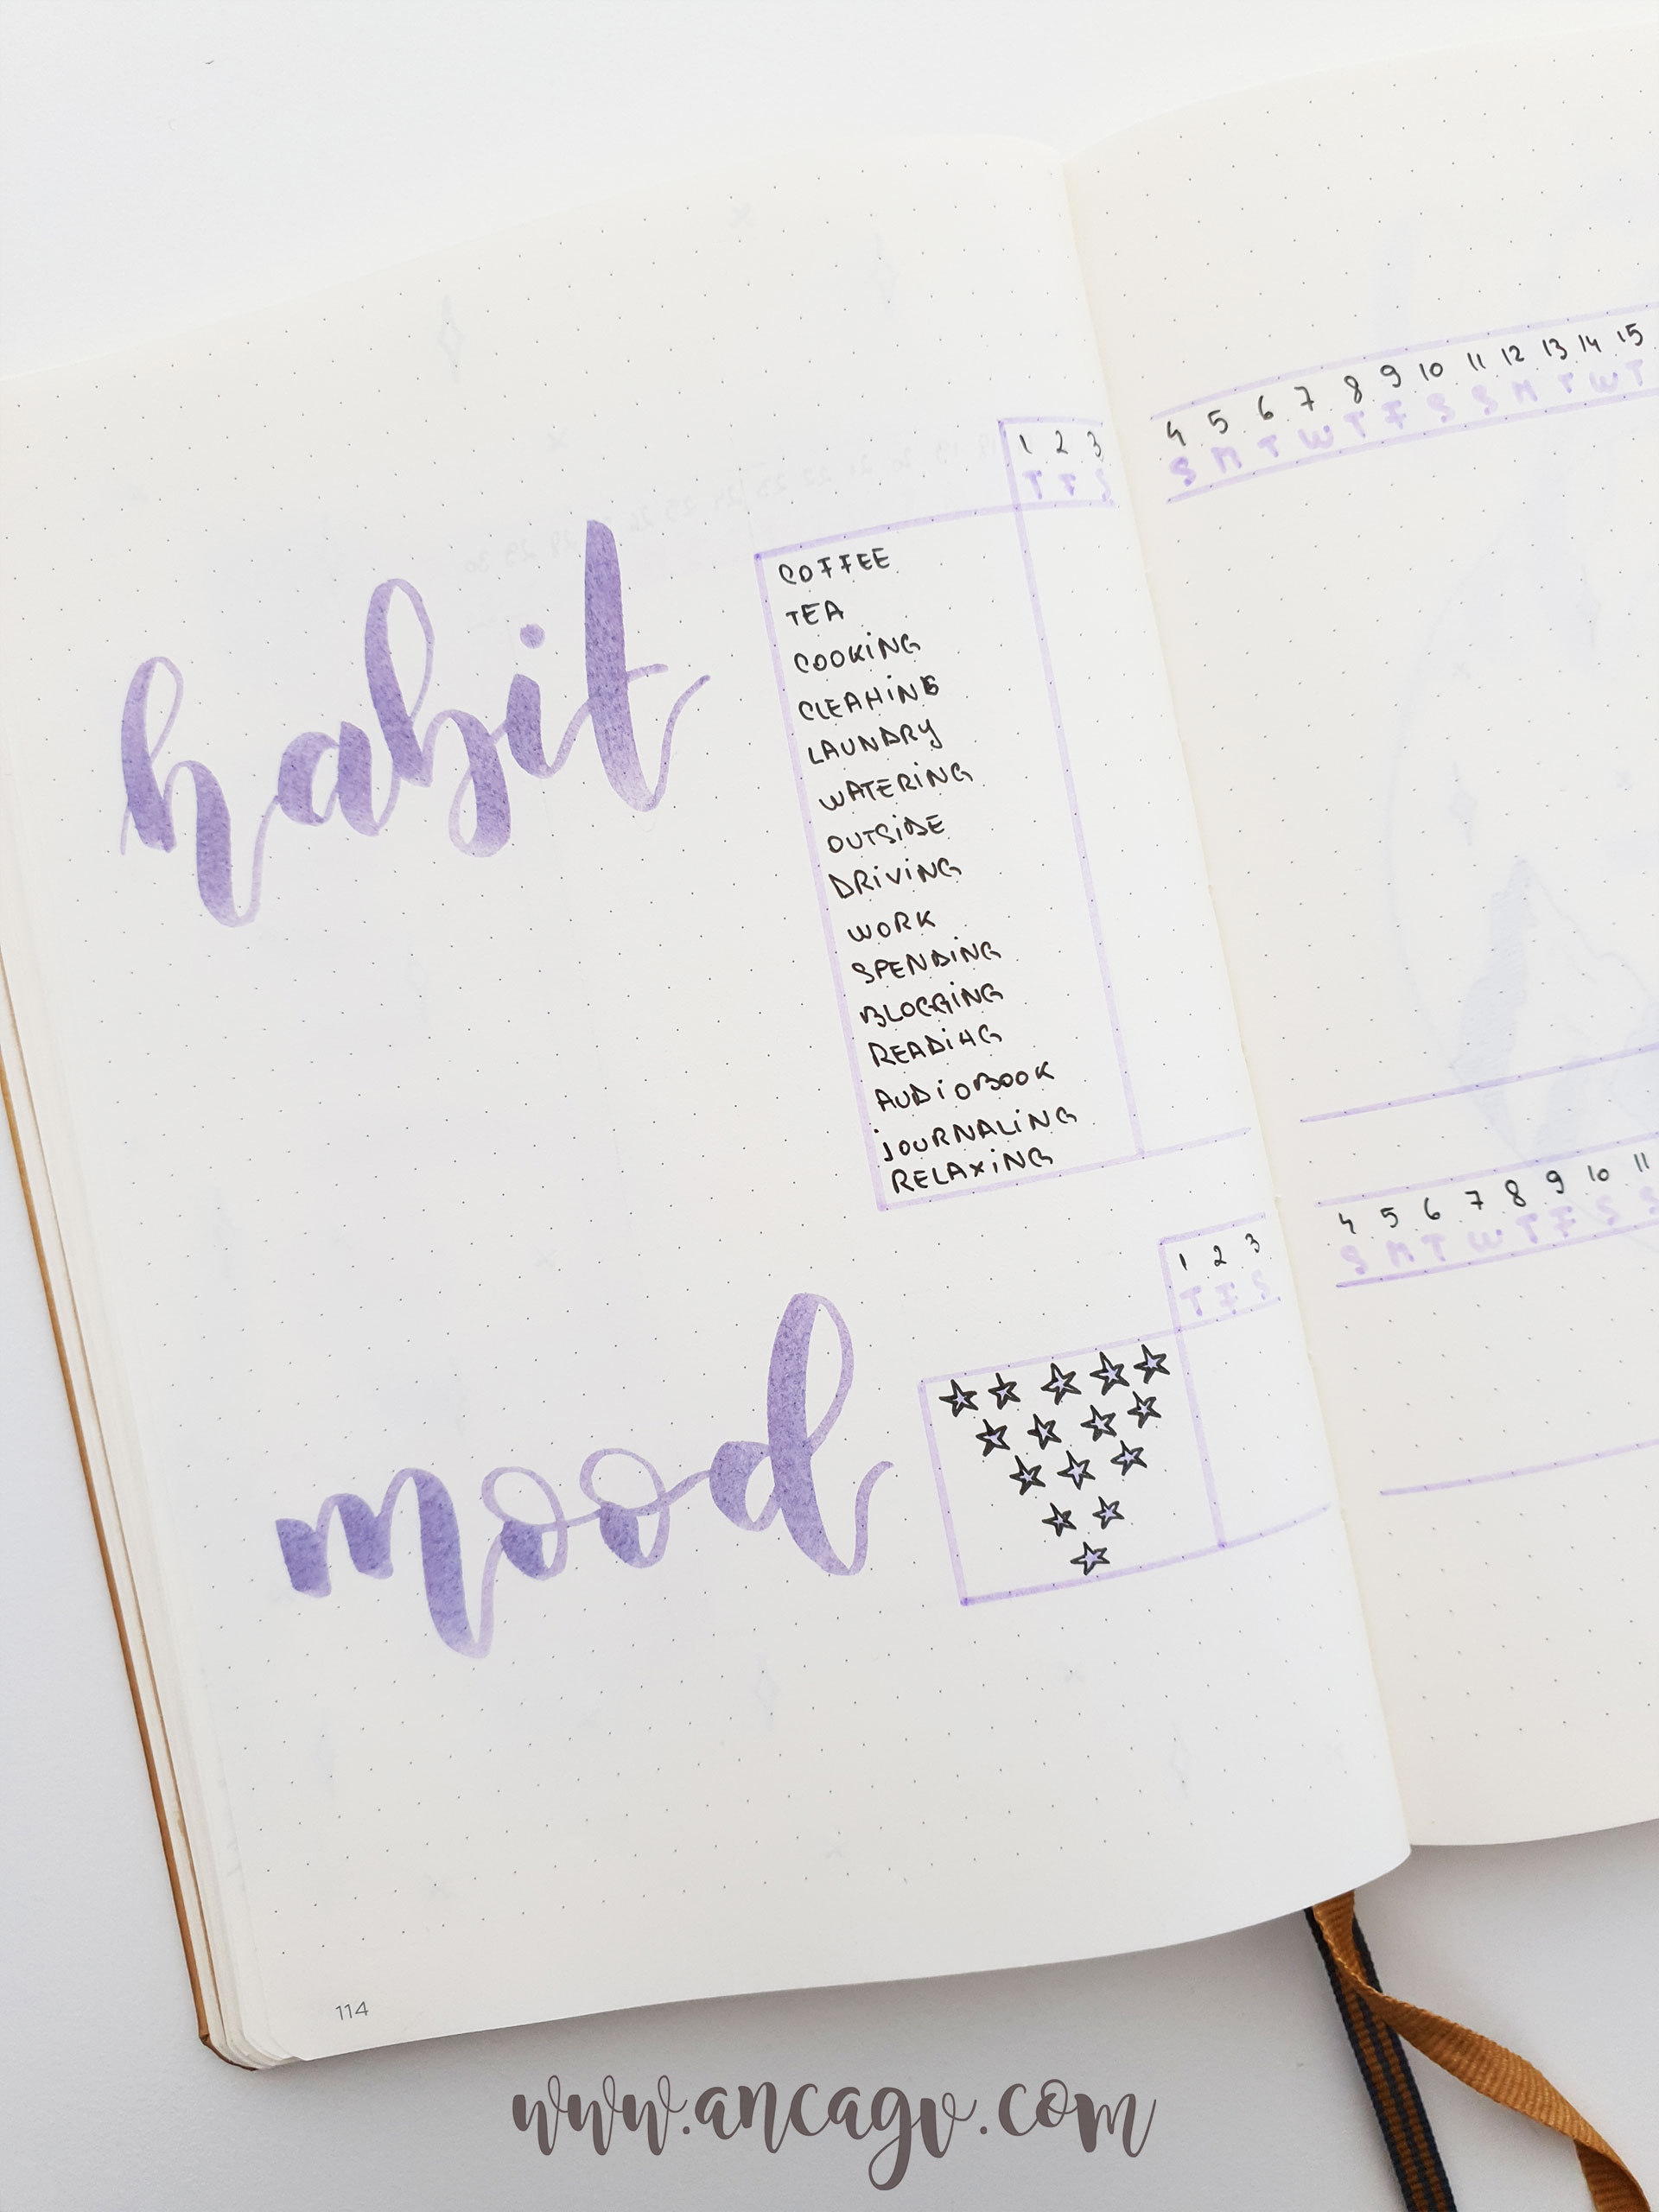 habit
1 2 3
T F S
COFFEE
TEA
COOKING
CLEAHING
LAUNDRY
WATERING
OUTSIDE
DRIVING
WORK
SPENDING
BLOGGING
READIHG
AUDIOBOOK
JOURNALING
RELAXING
mood
1 2 3
T F S
114
4 5 6 7 8 9 10 11 12 13 14 15
S M T W T F S S M T W T
4 5 6 7 8 9 10 11
S M T W T F S S
www.ancagv.com